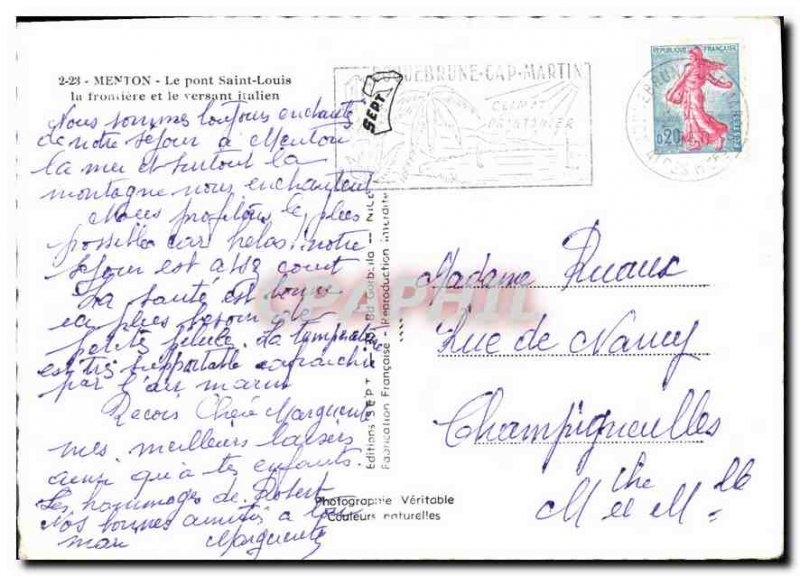 2-23 - MENTON - Le pont Saint-Louis
la frontière et le versant italien
Nous sommes toujours enchantés
de notre séjour à Menton
la mer et surtout la
montagne nous enchantent
Nous profitons le plus
possible car helas notre
séjour est assez court
La santé est bonne
plus besoin de
petite pilule. La température
est très supportable rafraichie
par l'air marin
Recois Chère Marguerite
mes meilleurs baisers
ainsi qu'à tes enfants.
Les hommages de Robert
Nos bonnes amitiés à ton
mari Marguerite
SEPT
ROQUEBRUNE-CAP-MARTIN
CLIMAT
REPUBLIQUE FRANÇAISE
0,20
POSTES
Editions SEPT
NICE
Fabrication Française - Reproduction interdite
Photographie Véritable
Couleurs naturelles
CPAPHIL
Madame Ruaux
Rue de Nancy
Champigneulles
Mthe et Mlle